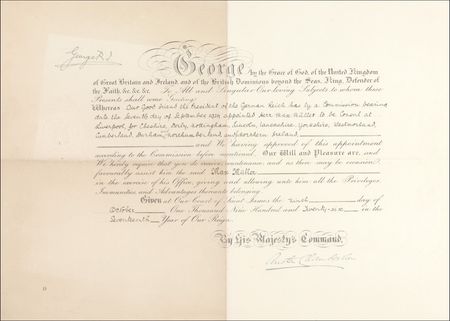 George R.I.
George, by the Grace of God, of the United Kingdom
of Great Britain and Ireland and of the British Dominions beyond the Seas, King, Defender of
the Faith, &c. &c. &c. To All and Singular Our loving Subjects to whom these
Presents shall come Greeting:
Whereas Our Good Friend the President of the German Reich has by a Commission bearing
date the Seventh day of September appointed Herr Max Müller to be Consul at
Liverpool, for Cheshire, Derby, Nottingham, Lincoln, Lancashire, Yorkshire, Westmorland,
Cumberland, Durham, Northumberland and Northern Ireland
and We having approved of this appointment
according to the Commission before mentioned Our Will and Pleasure are, and
We hereby require that you do receive countenance, and as there may be occasion
favorably assist him the said Max Müller
in the exercise of his Office, giving and allowing unto him all the Privileges,
Immunities and Advantages thereunto belonging.
Given at Our Court of Saint James the ninth day of
October One Thousand Nine Hundred and Twenty-six in the
Seventeenth Year of Our Reign.
By His Majesty's Command,